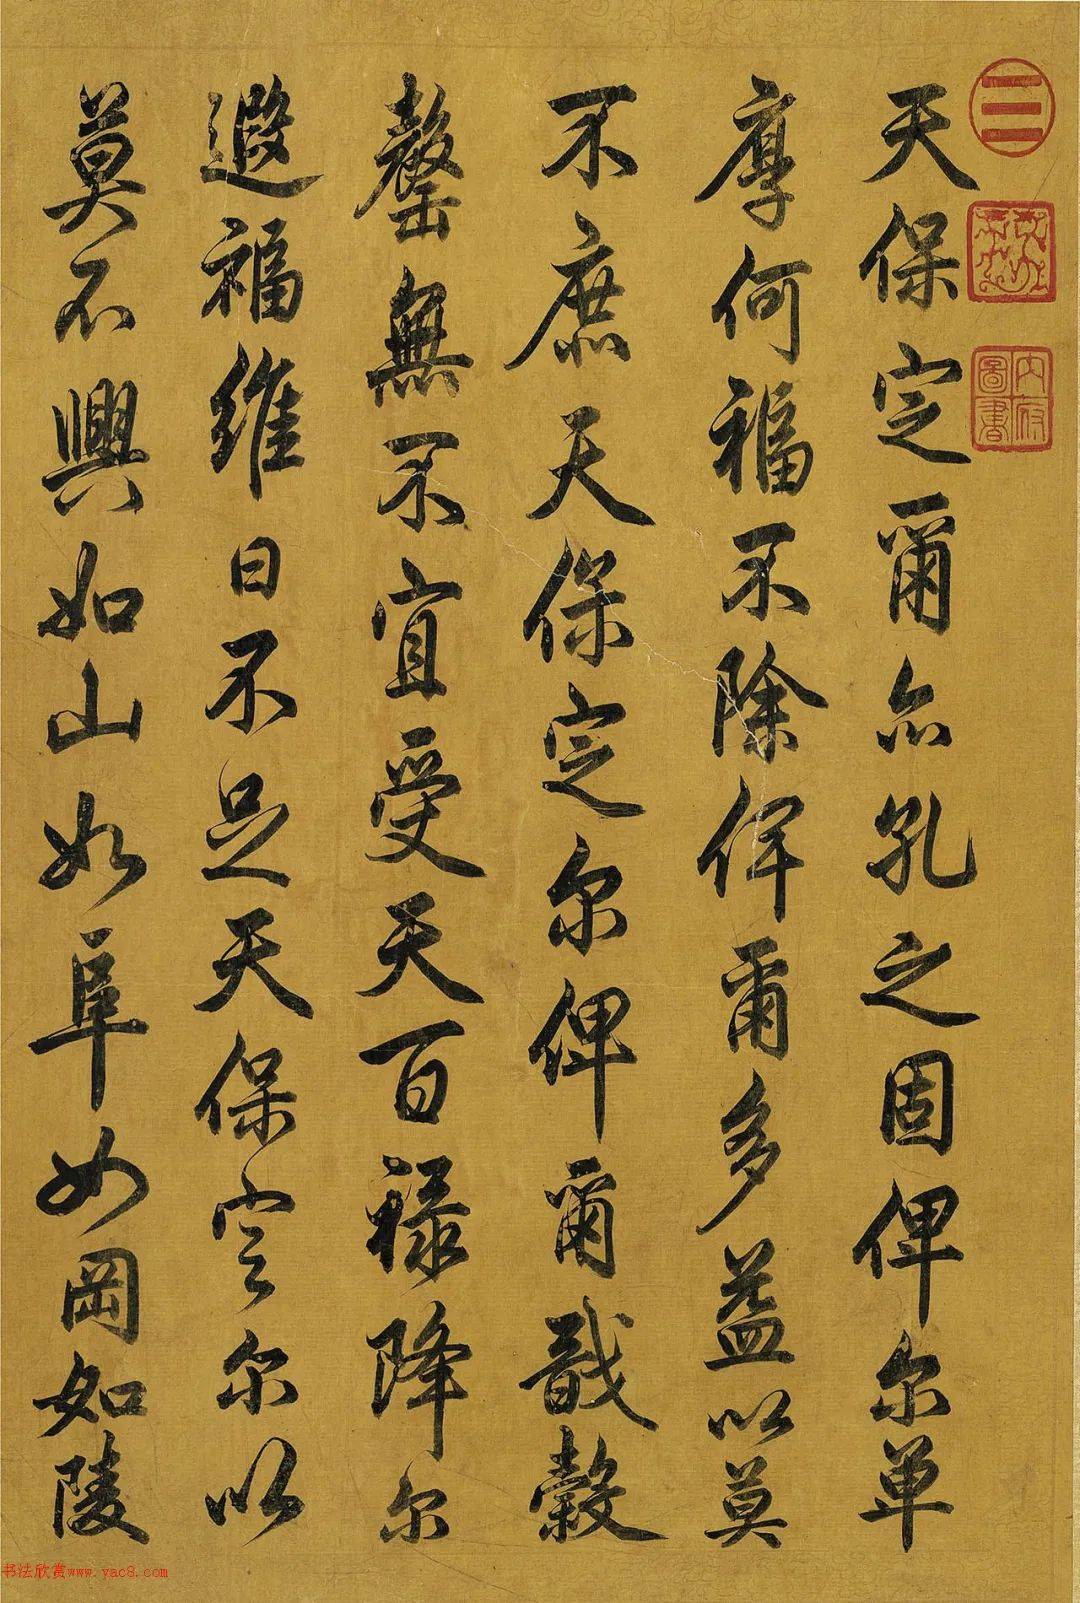 天保定爾亦孔之固俾尔單
厚何福不除俾爾多益以莫
不庶天保定尔俾爾戩穀
罄無不宜受天百禄降尔
遐福維日不足天保定尔以
莫不興如山如阜如岡如陵
内府圖書
书法欣赏www.yac8.com